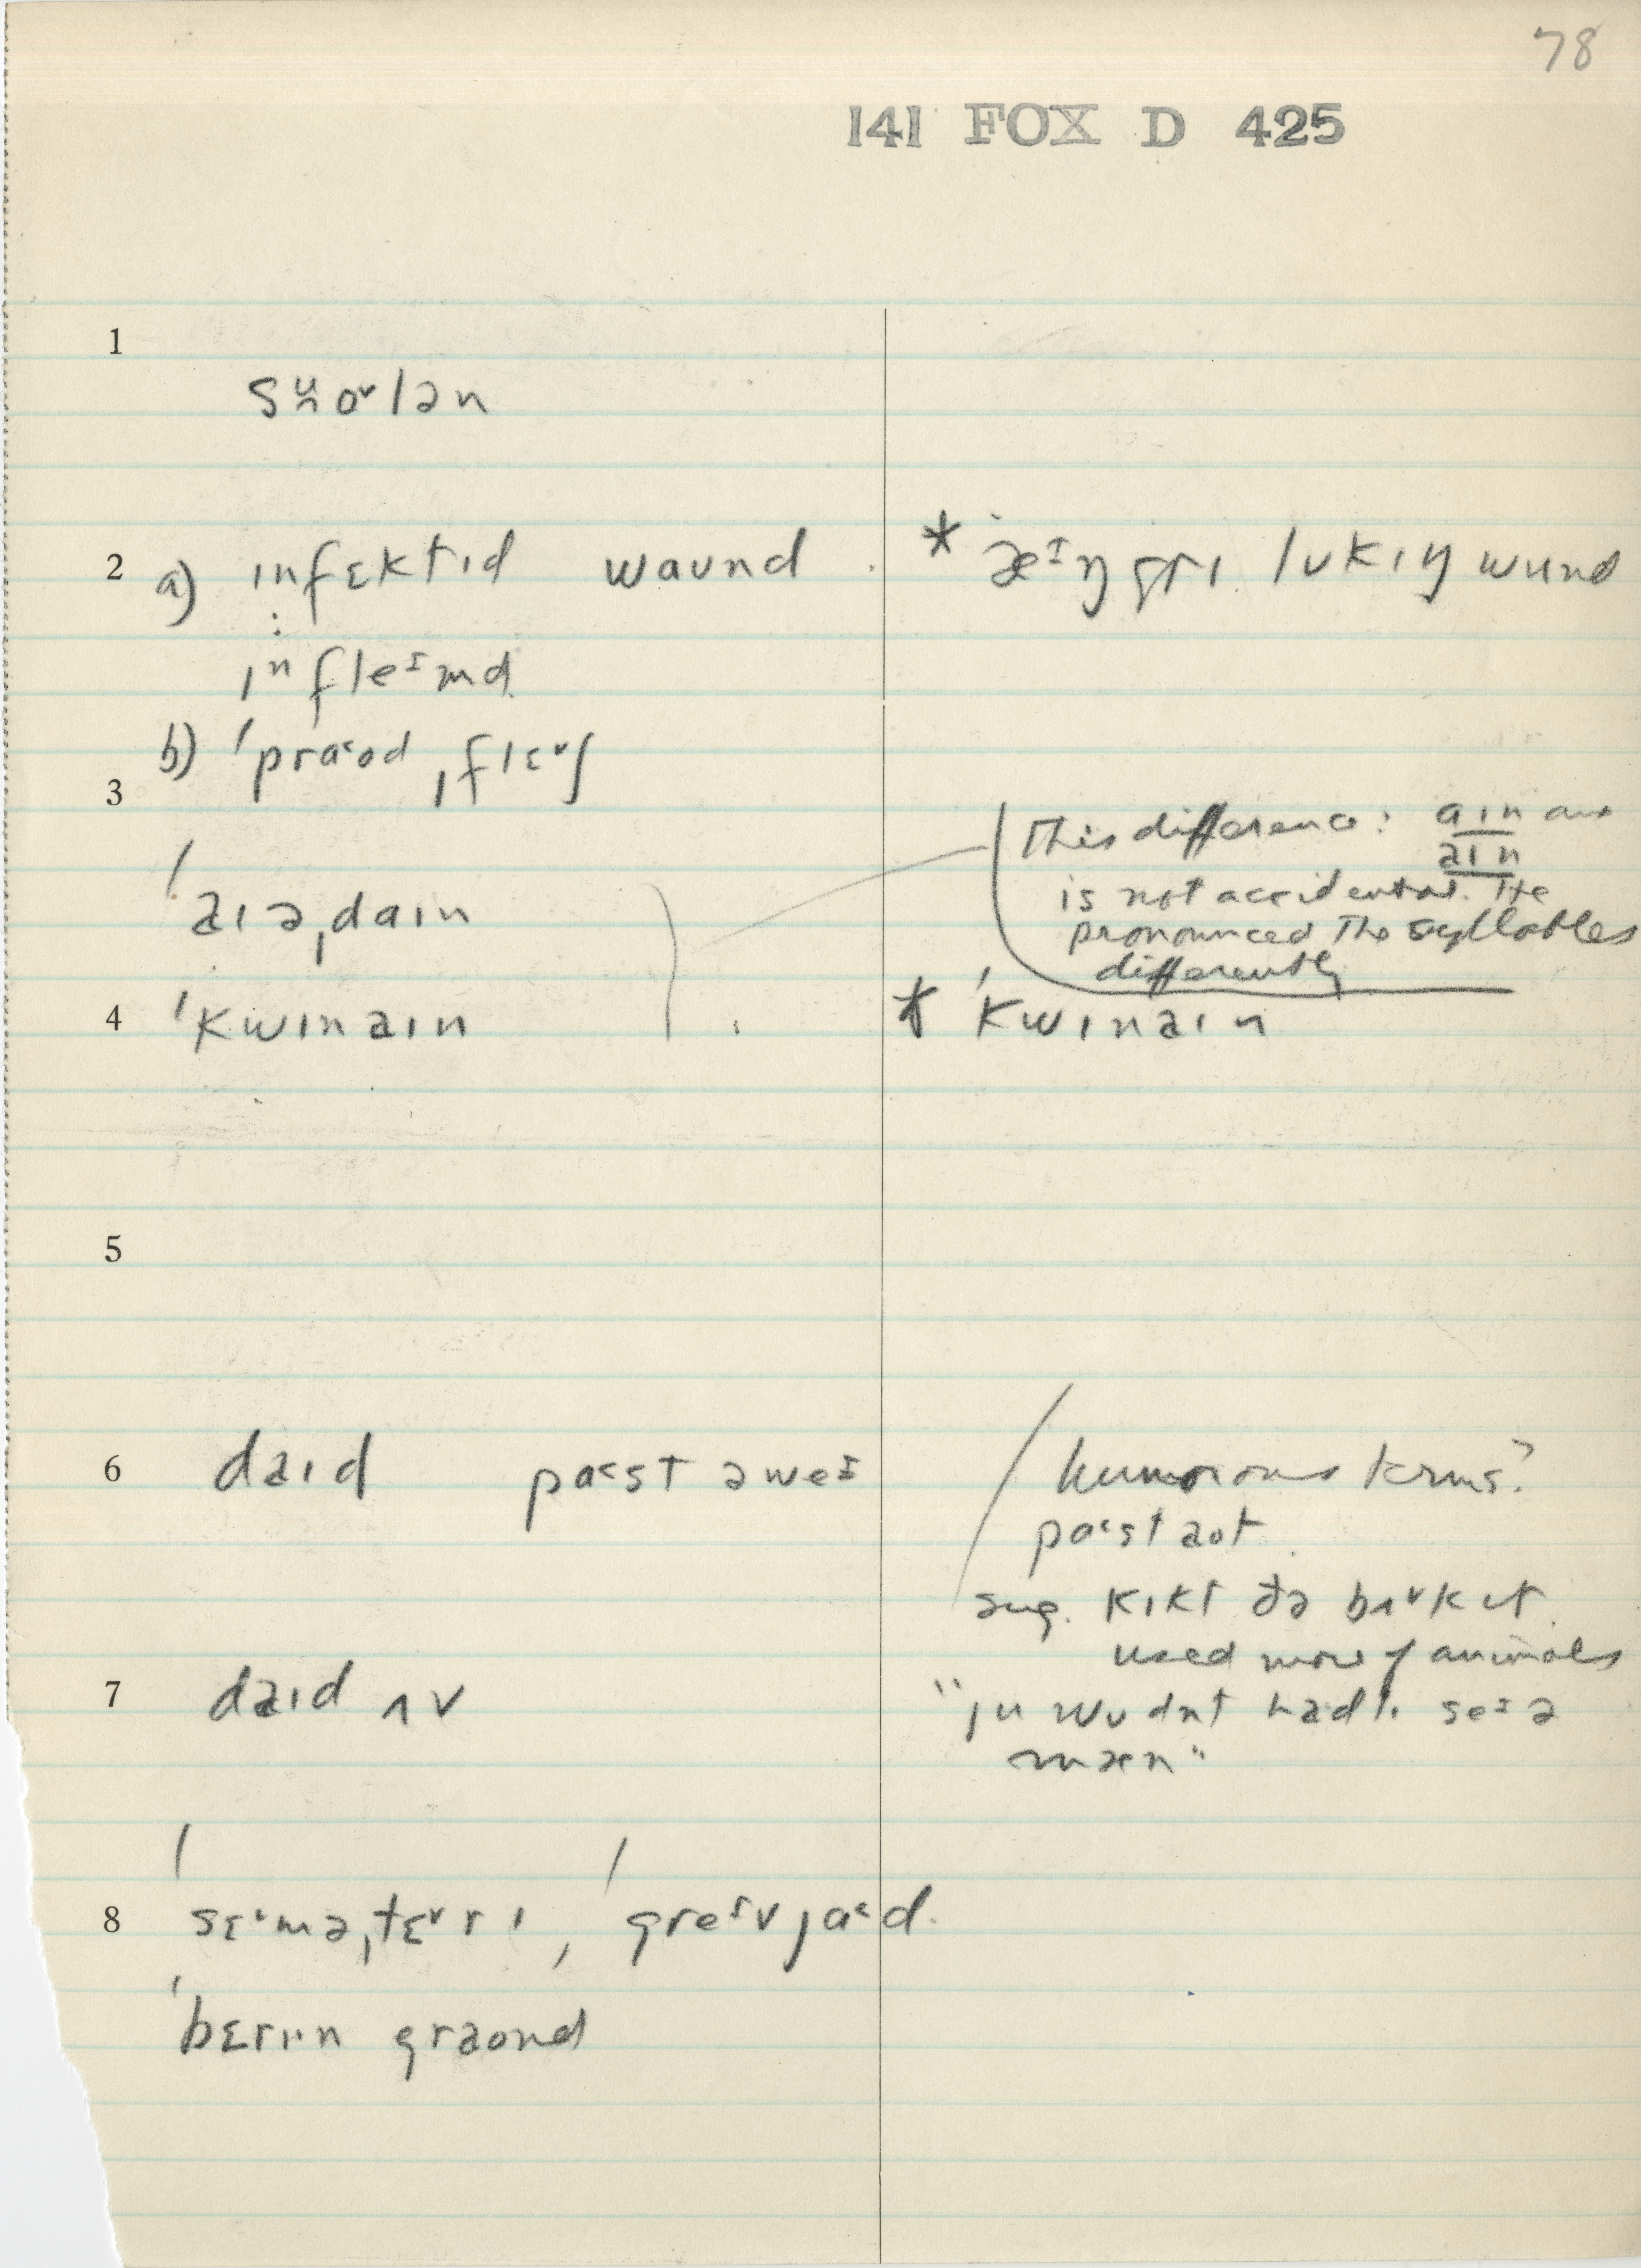 78
141 FOX D 425
1
2 a) ɪnfɛktɪd waʊnd * æᴵŋgrɪ lʊkɪŋ wund
ɪnfleᴵmd
b) ˈpra˂od ˌflɛ˅ʃ
3
This difference: aɪn and
aɪn
ˈaɪəˌdaɪn
is not accidental. He
pronounced the syllables
differently
4 ˈkwɪnaɪn * ˈkwɪnaɪn
5
6 daɪd pa˂st əweᴵ humorous terms?
pa˂st aot
sug. kɪkt ðə bʌ˅kɪt
used more of animals
7 daɪd ʌv "ju wʊdnt hadlɪ seᴵ ə
mæn"
8 sɛ˄məˌtɛ˅rɪ, ˈgreᴵvja˂d
ˈbɛrɪɪn graond